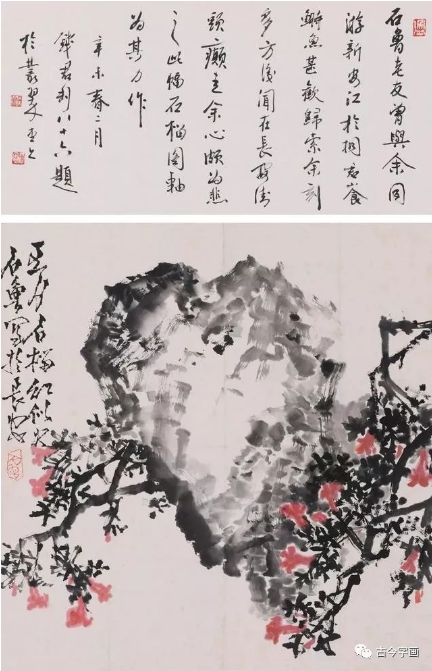 石魯老友曾與余同
游新安江於桐君
鰣魚甚歡歸索余刻
多方後聞在長安街
頭癲走余心頗為悲
之此幅石榴圖軸
為其力作
辛未春二月
錢君匋八十六題
五月石榴紅似火
石魯寫於長安
古今字画